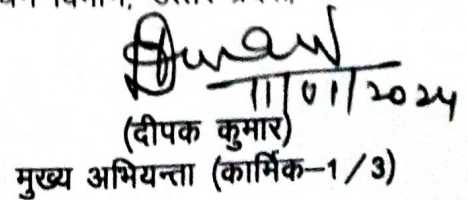 11/01/2024
(दीपक कुमार)
मुख्य अभियन्ता (कार्मिक-1/3)